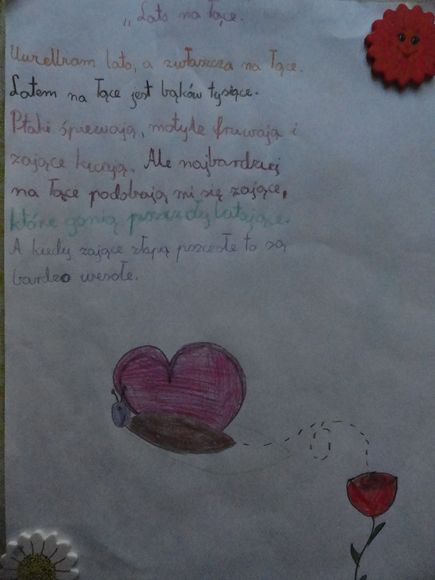 „Lato na łące.
Uwielbiam lato, a zwłaszcza na łące.
Latem na łące jest bąków tysiące.
Ptaki śpiewają, motyle fruwają i
zające kicają. Ale najbardziej
na łące podobają mi się zające,
które gonią pszczoły latające.
A kiedy zające złapą pszczołe to są
bardzo wesołe.